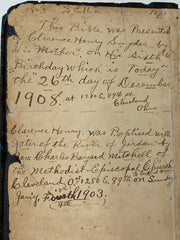 This Bible was Presented
by Clarence Henry Snyder by
His Mother, on His Sixth
Birthday Which is Today
the 26th day of December
1908. at 1286 E, 89th
Cleveland
Ohio
Clarence Henry. was Baptised with
Water of the River of Jordan by
Rev Charles Bayard Mitchell of
the Methodist Episcopal Church
Cleveland O. 1286 E, 89th on Sunday
Jan'y, Fourth 1903.
4th